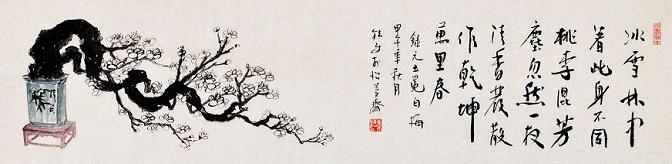 冰雪林中
着此身不同
桃李混芳
塵忽然一夜
清香發散
作乾坤
萬里春
錄元王冕白梅
甲午年秋月
於松齋